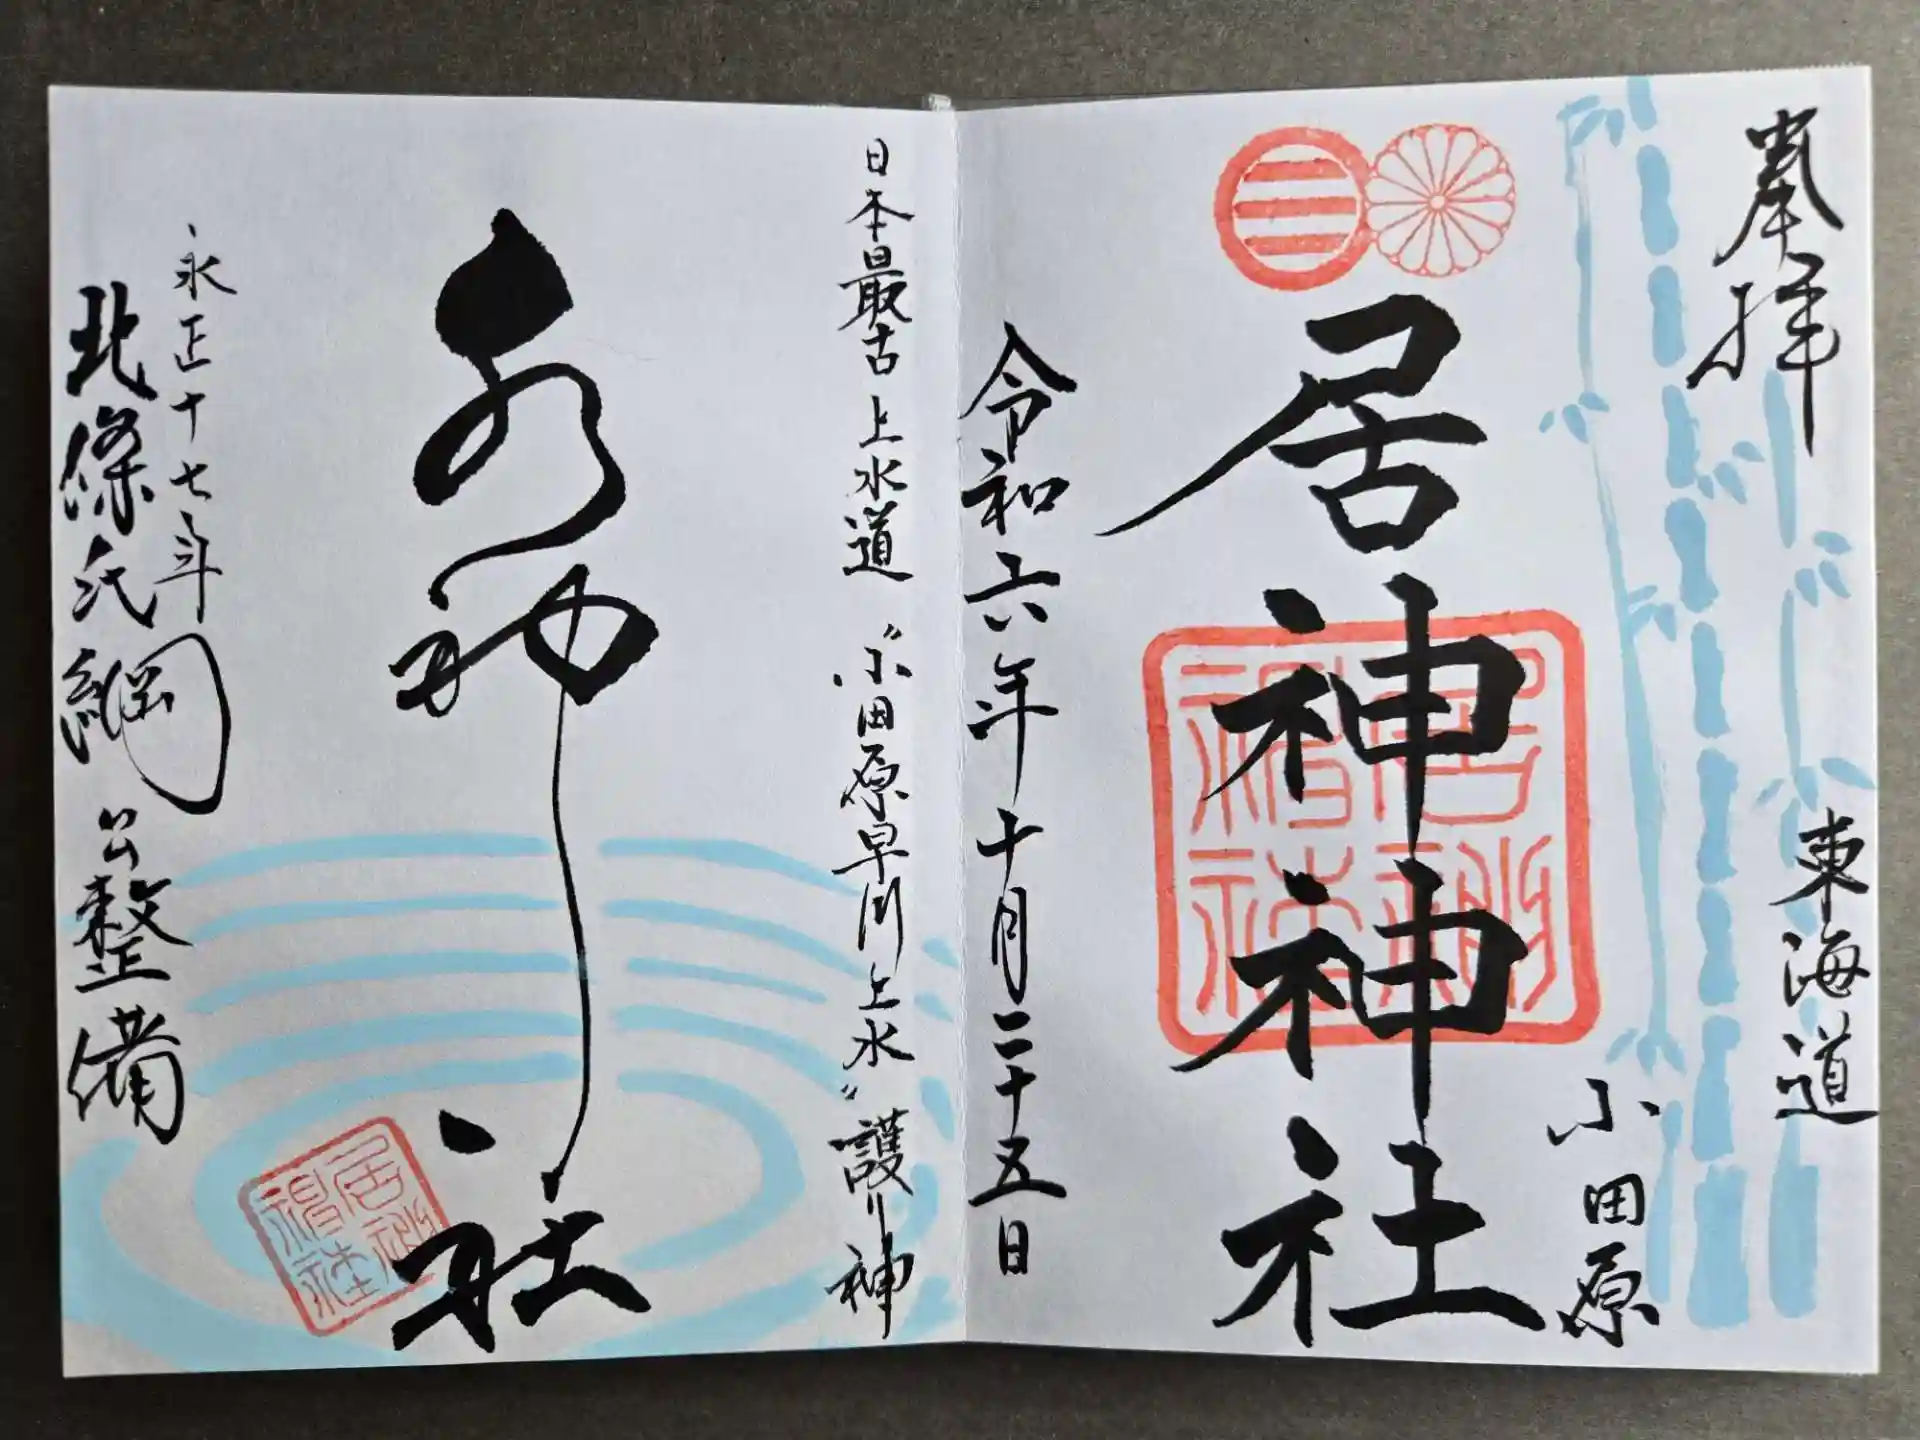 奉拝
東海道
小田原
居神神社
令和六年十月二十五日
日本最古上水道〝小田原早川上水〟護り神
水神社
永正十七年
北條氏綱公整備
居神
神社